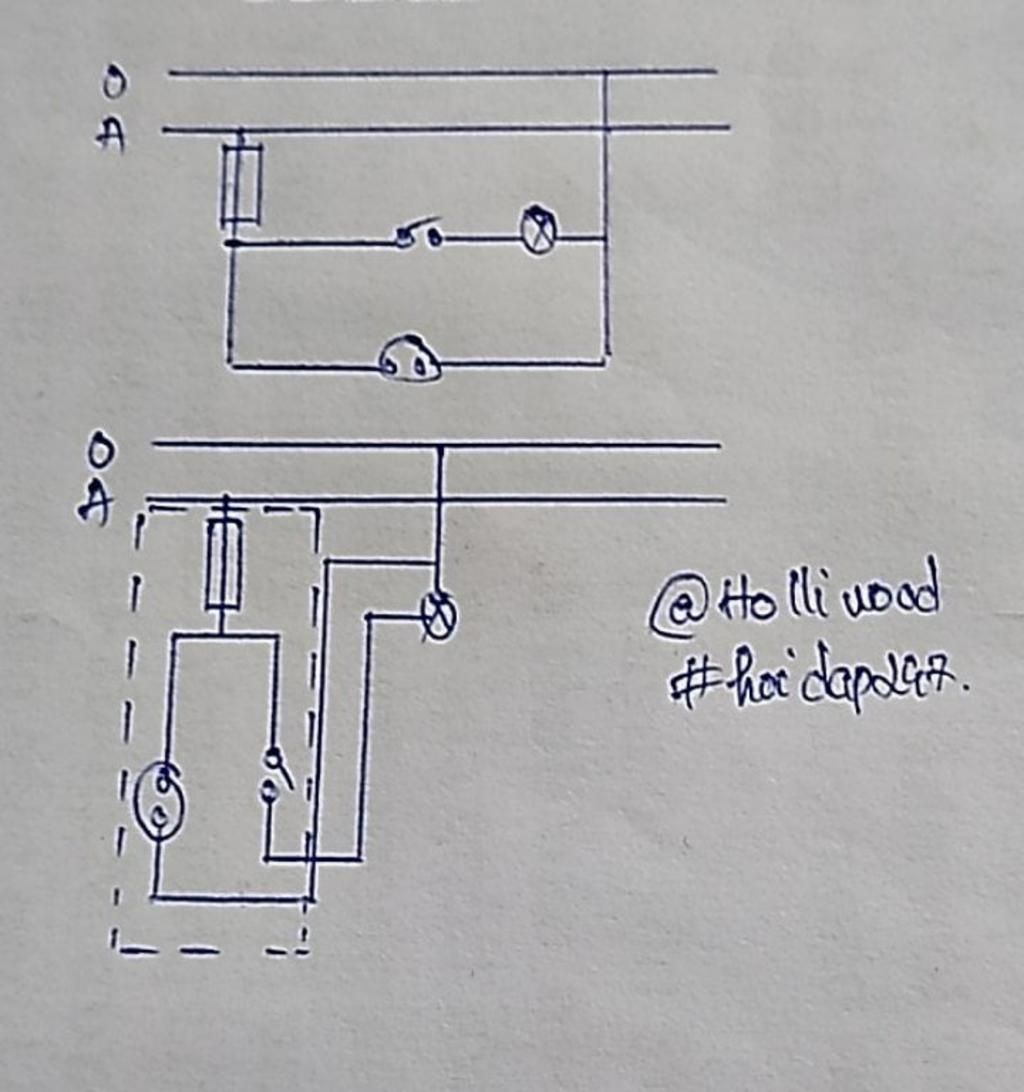 O
A
O
A
@Holliwood
#hoidap247.